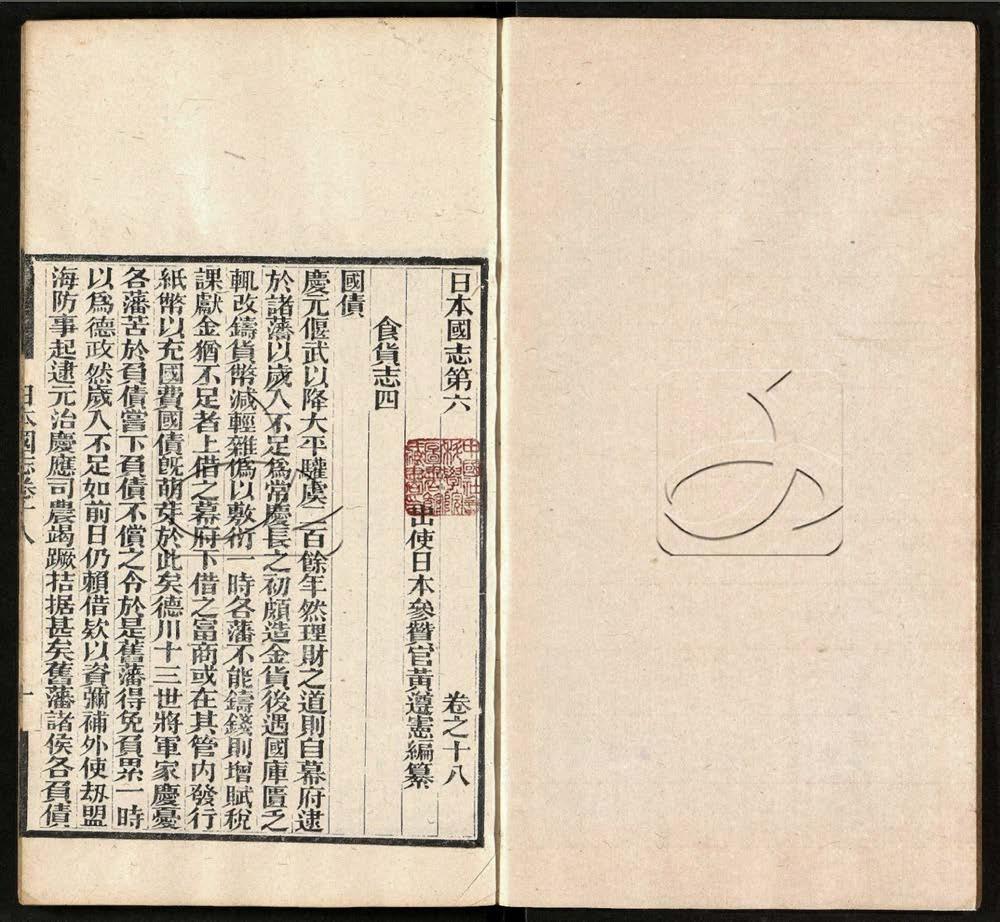 日本國志第六 卷之十八
出使日本參贊官黃遵憲編纂
食貨志四
國債
慶元偃武以降大平驩虞二百餘年然理財之道則自幕府逮
於諸藩以歲入不足為常慶長之初頗造金貨後遇國庫匱乏
輒改鑄貨幣減輕雜偽以敷衍一時各藩不能鑄錢則增賦稅
課獻金猶不足者上借之幕府下借之富商或在其管內發行
紙幣以充國費國債旣萌芽於此矣德川十三世將軍家慶憂
各藩苦於負債嘗下負債不償之令於是舊藩得免負累一時
以爲德政然歲入不足如前日仍賴借欵以資彌補外使劫盟
海防事起逮元治慶應司農竭蹶拮据甚矣舊藩諸侯各負債
日本國志卷十八
一